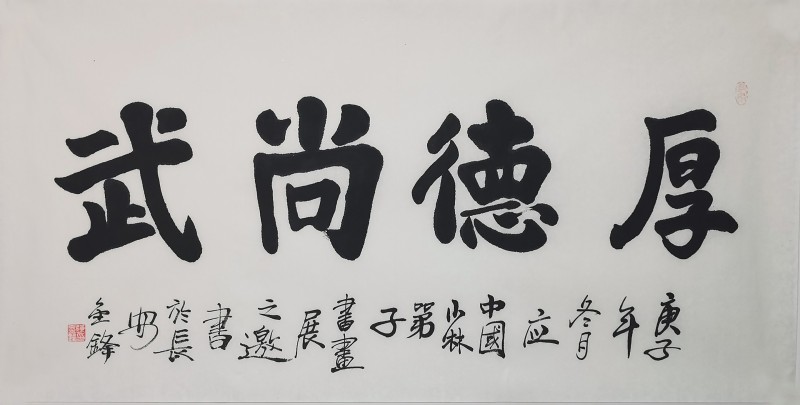 厚德尚武
庚子年冬月应中國少林第子書畫展之邀書於長安金鋒